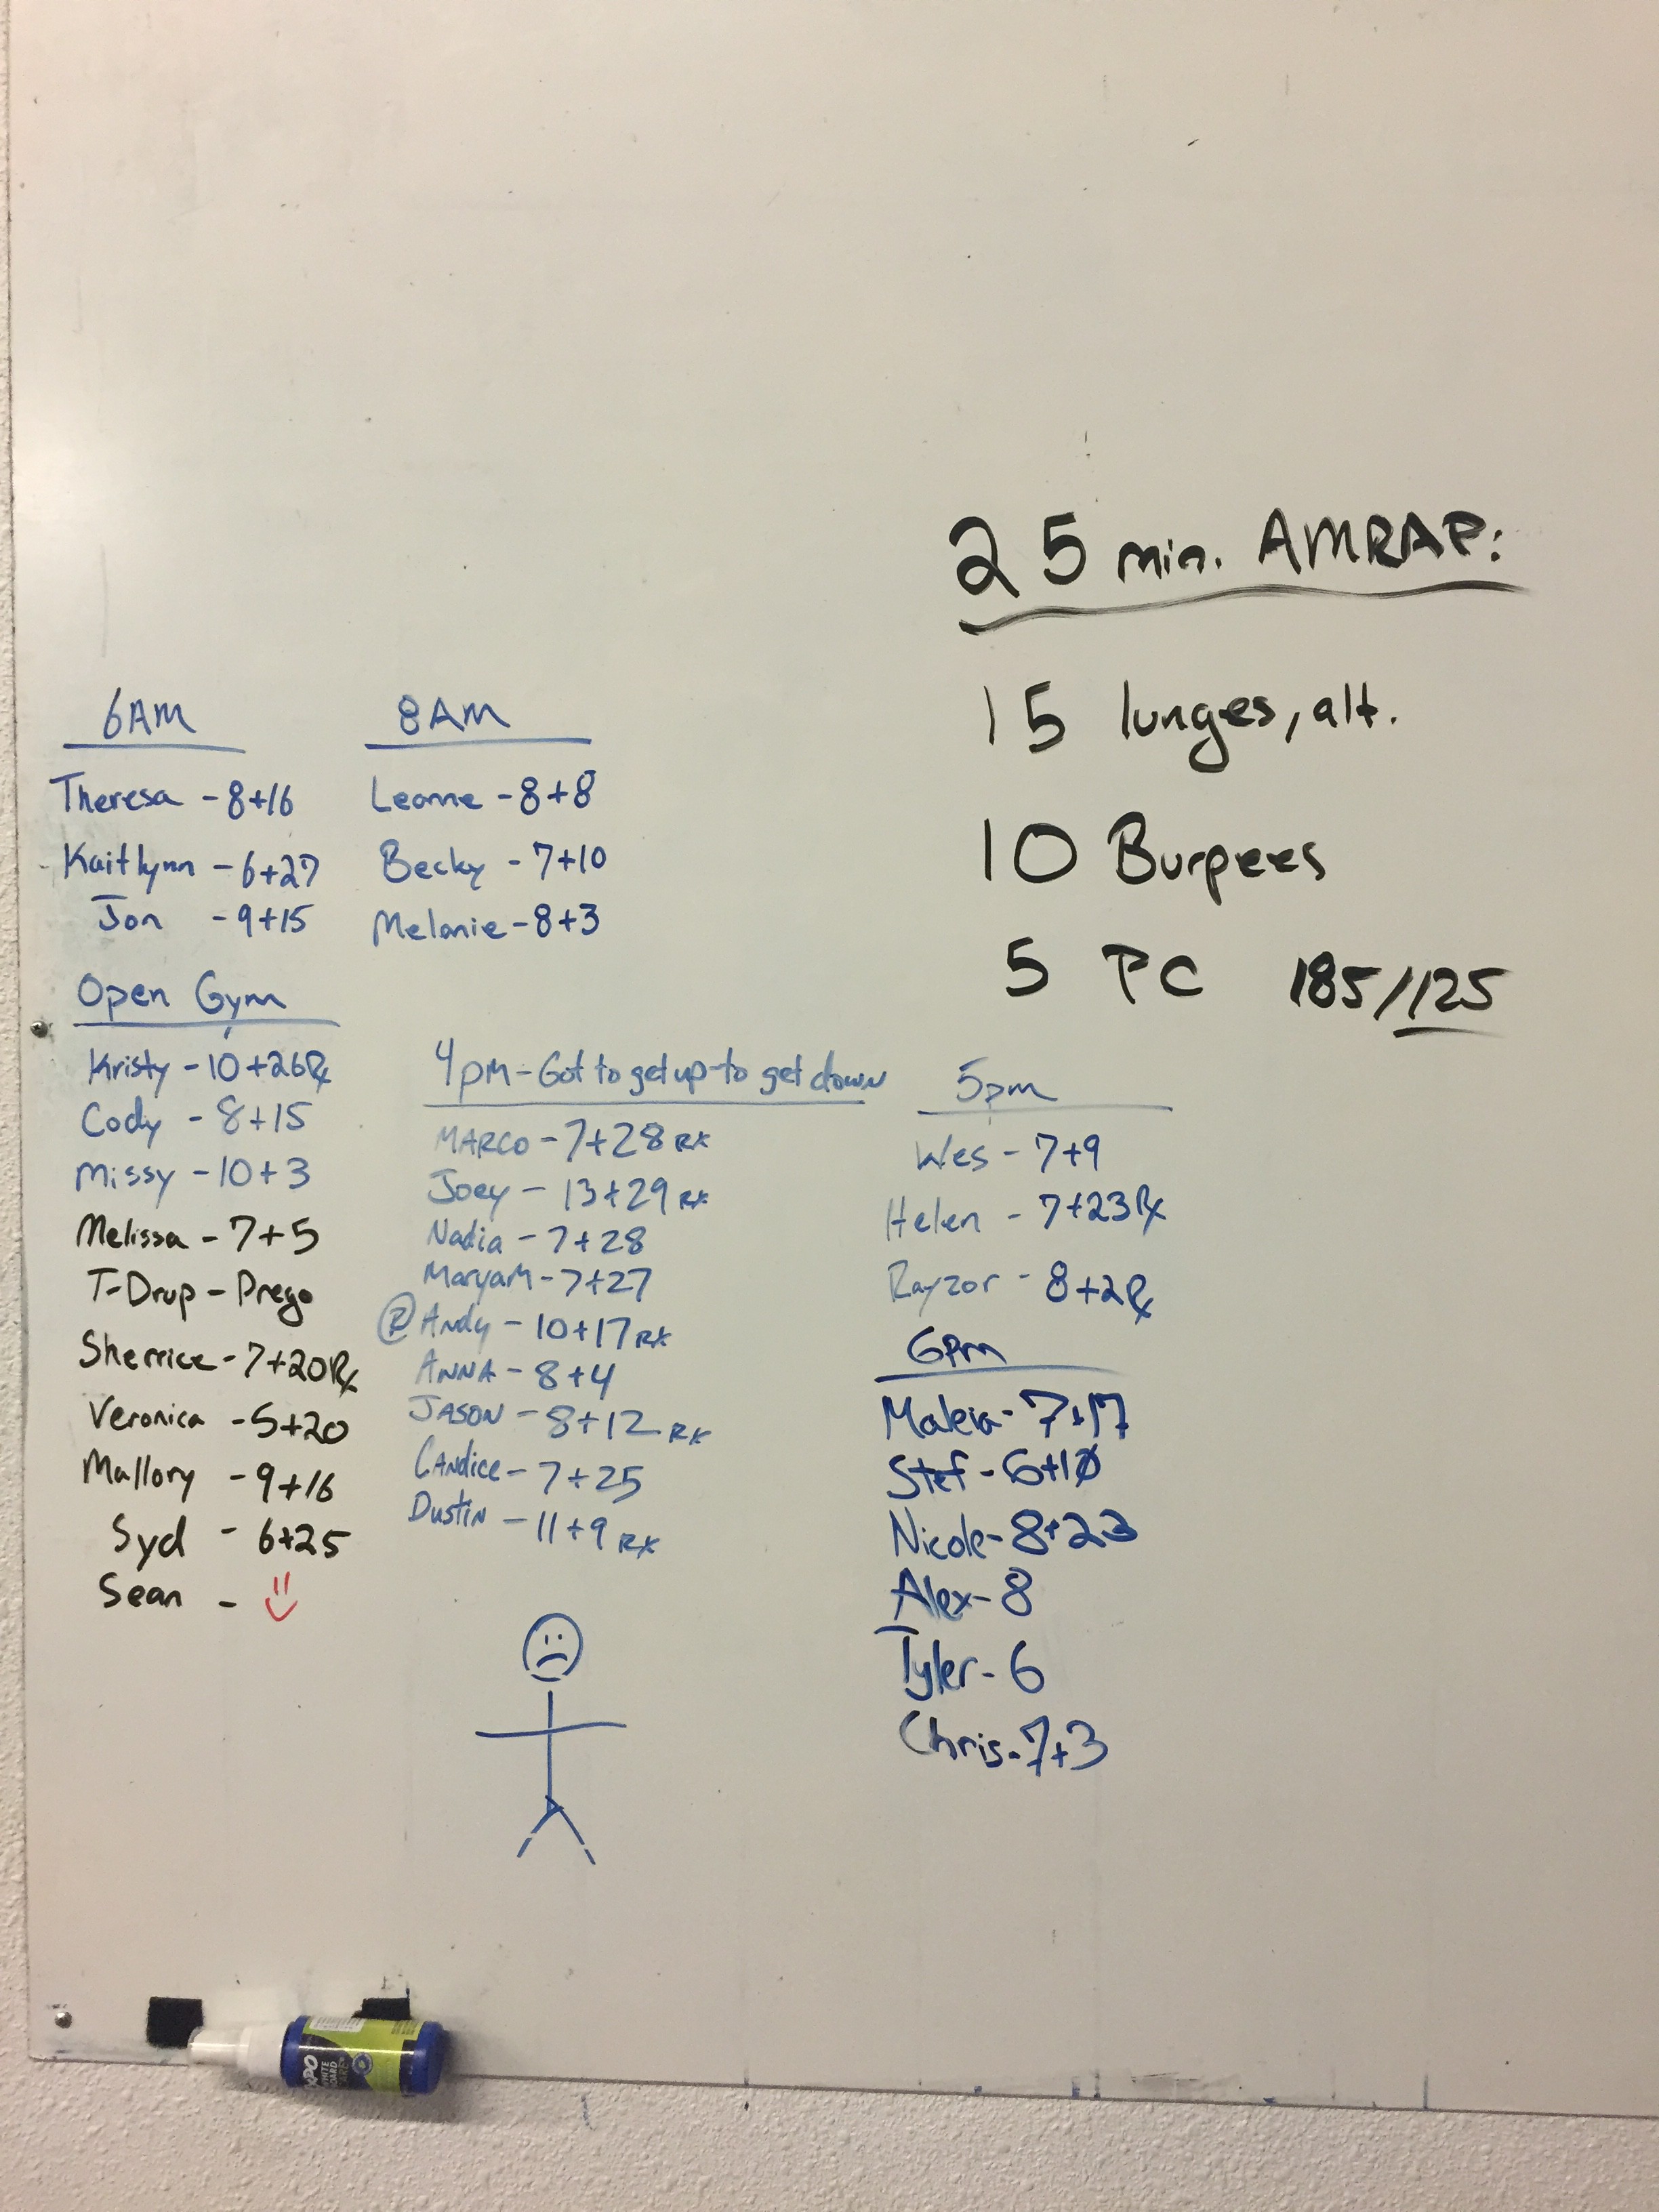 25 min. AMRAP:
15 lunges, alt.
10 Burpees
5 PC 185/125
6AM
Theresa - 8+16
Kaitlynn - 6+27
Jon - 9+15
8AM
Leanne - 8+8
Becky - 7+10
Melanie - 8+3
Open Gym
Kristy - 10+26Rx
Cody - 8+15
Missy - 10+3
Melissa - 7+5
T-Drup - Prego
Sherrice - 7+20Rx
Veronica - 5+20
Mallory - 9+16
Syd - 6+25
Sean -
4pm - Got to get up to get down
MARCO - 7+28 RX
Joey - 13+29 RX
Nadia - 7+28
MaryaM - 7+27
Andy - 10+17 RX
ANNA - 8+4
JASON - 8+12 RX
CANdice - 7+25
DustiN - 11+9 RX
5pm
Wes - 7+9
Helen - 7+23Rx
Rayzor - 8+2Rx
6pm
Maleia - 7+17
Stef - 6+10
Nicole - 8+23
Alex - 8
Tyler - 6
Chris - 7+3
EXPO
WHITE
BOARD
CARE